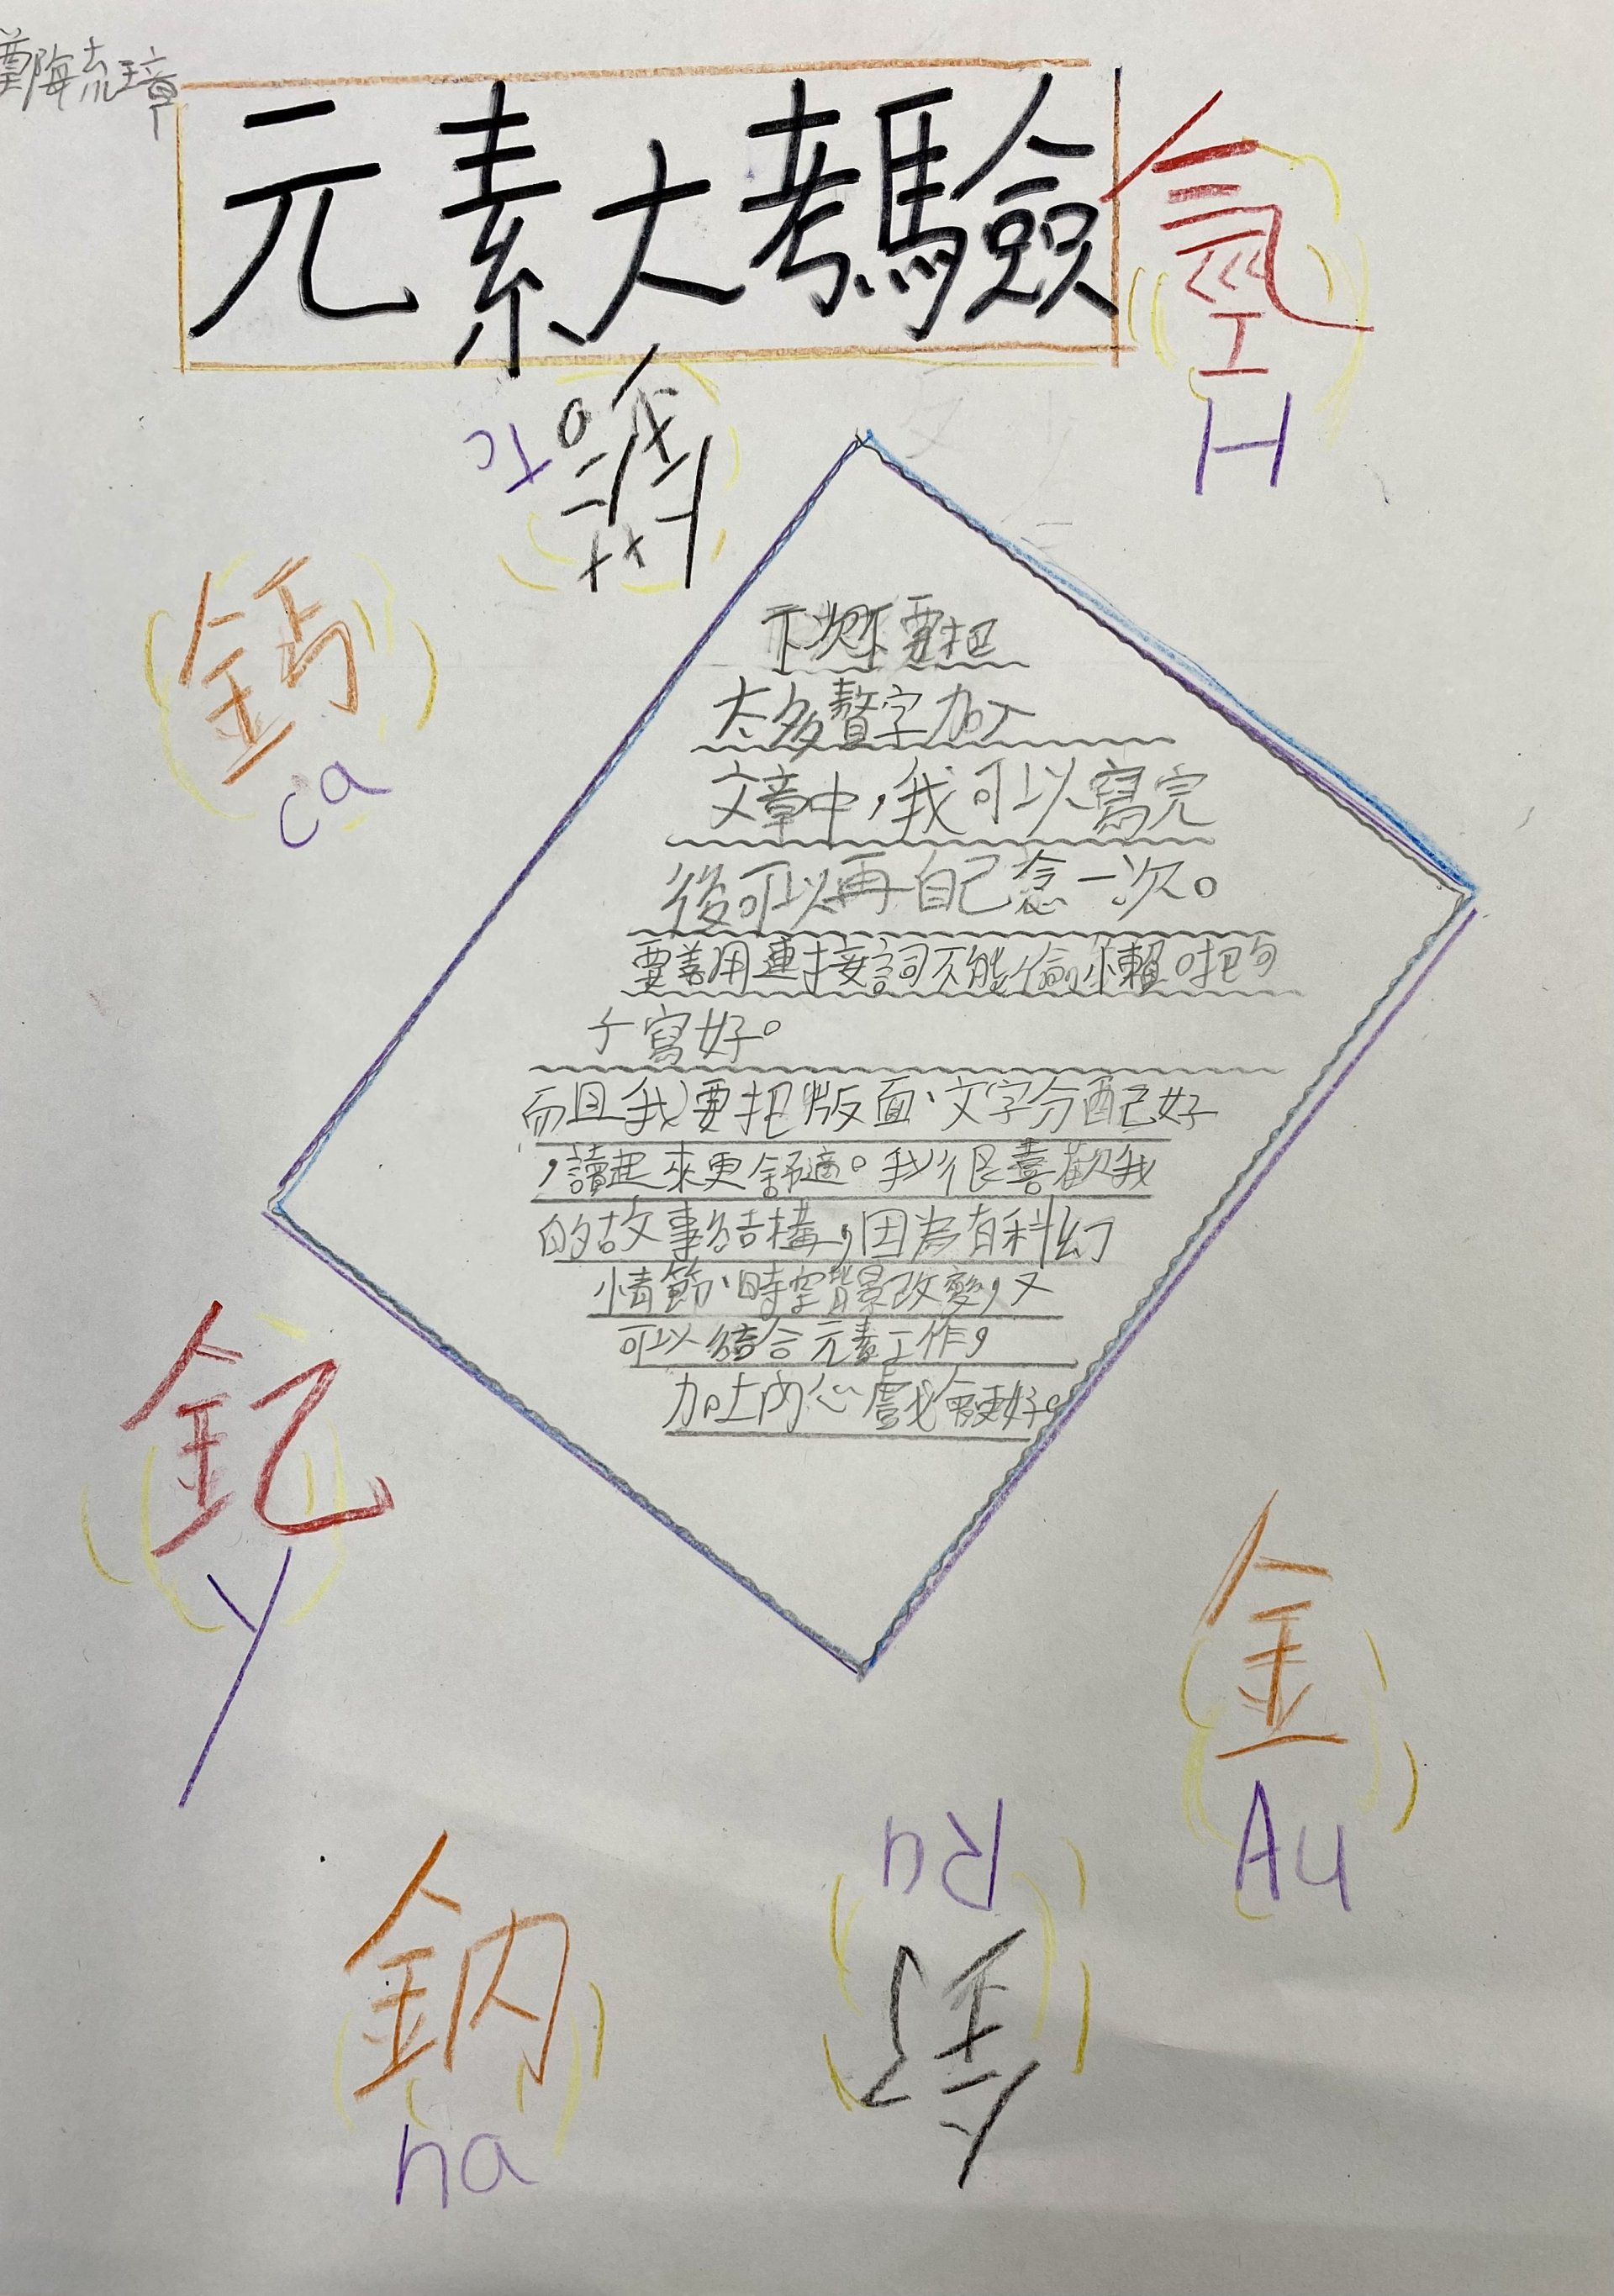 元素大考驗
氫
H
Tc
鈣
ca
下次不要把
太多贅字加入
文章中，我可以寫完
後可以再自己念一次。
要善用連接詞不能偷懶。把句
子寫好。
而且我要把版面、文字分配好
，讀起來更舒適。我很喜歡我
的故事結構，因為有科幻
情節、時空背景改變，又
可以結合元素工作，
加上內心戲會更好。
釔
Y
金
Au
鈉
na
Ru
釕